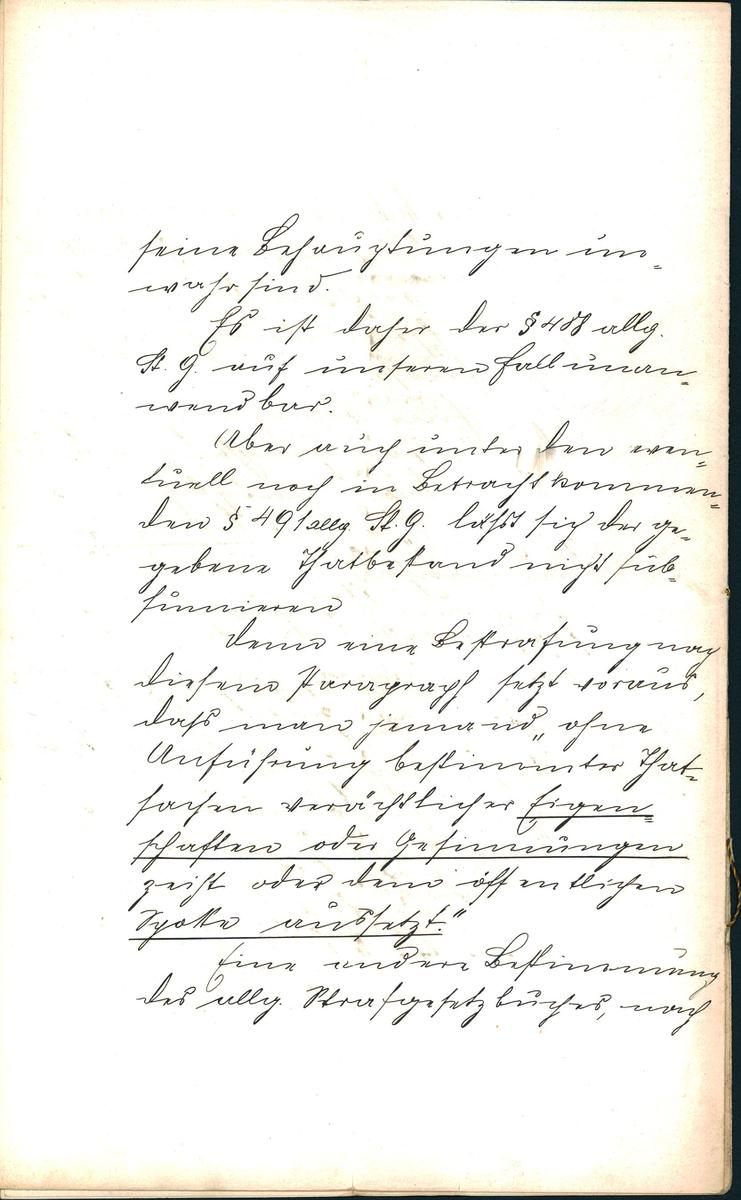 seine Behauptungen un=
wahr sind.
Es ist daher der § 488 allg.
St. G. auf unseren Fall unan=
wendbar.
Aber auch unter den even=
tuell noch in Betracht kommen=
den § 491 allg St. G. läßt sich der ge=
gebene Thatbestand nicht sub=
sumieren
Denn eine Bestrafung nach
diesem Paragraph setzt voraus,
daß man jemand „ohne
Anführung bestimmter That=
sachen verächtlicher Eigen=
schaften oder Gesinnungen
zeiht oder dem öffentlichen
Spotte aussetzt."
Eine andere Bestimmung
des allg. Strafgesetzbuches, nach